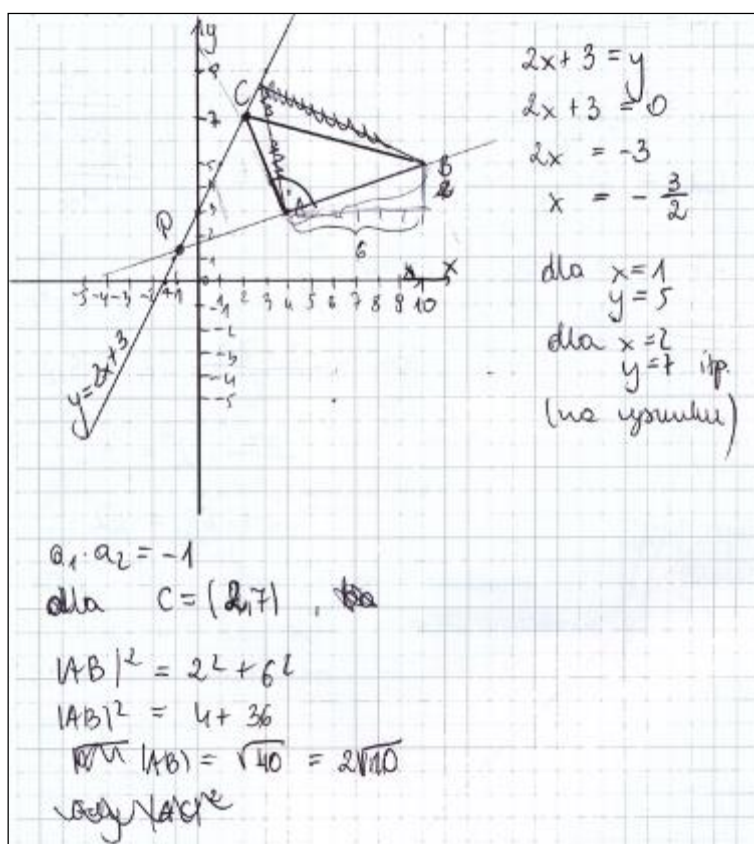 y
9
C
7
5
B
4
3
A
2
P
1
6
x
-5 -4 -3 -2 -1 1 2 3 4 5 6 7 8 9 10
-1
-2
-3
-4
-5
y=2x+3
2x+3 = y
2x+3 = 0
2x = -3
x = - 3/2
dla x=1
y=5
dla x=2
y=7 itp.
(na rysunku)
a₁·a₂ = -1
dla C=(2,7),
|AB|² = 2² + 6²
|AB|² = 4 + 36
|AB| = √40 = 2√10